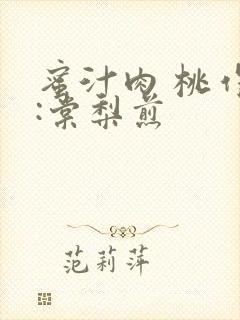 蜜汁肉桃 作
:棠梨煎
范莉萍